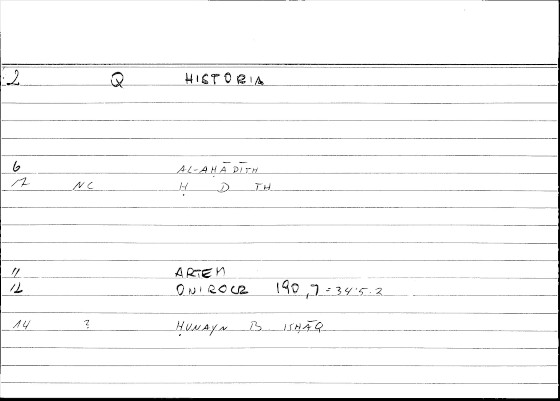 2 Q HISTORIA
6 AL-AḤĀDĪTH
12 NC Ḥ D TH
11 ARTEM
12 ONIROCR 190,7=345.2
14 ? ḤUNAYN B ISḤĀQ